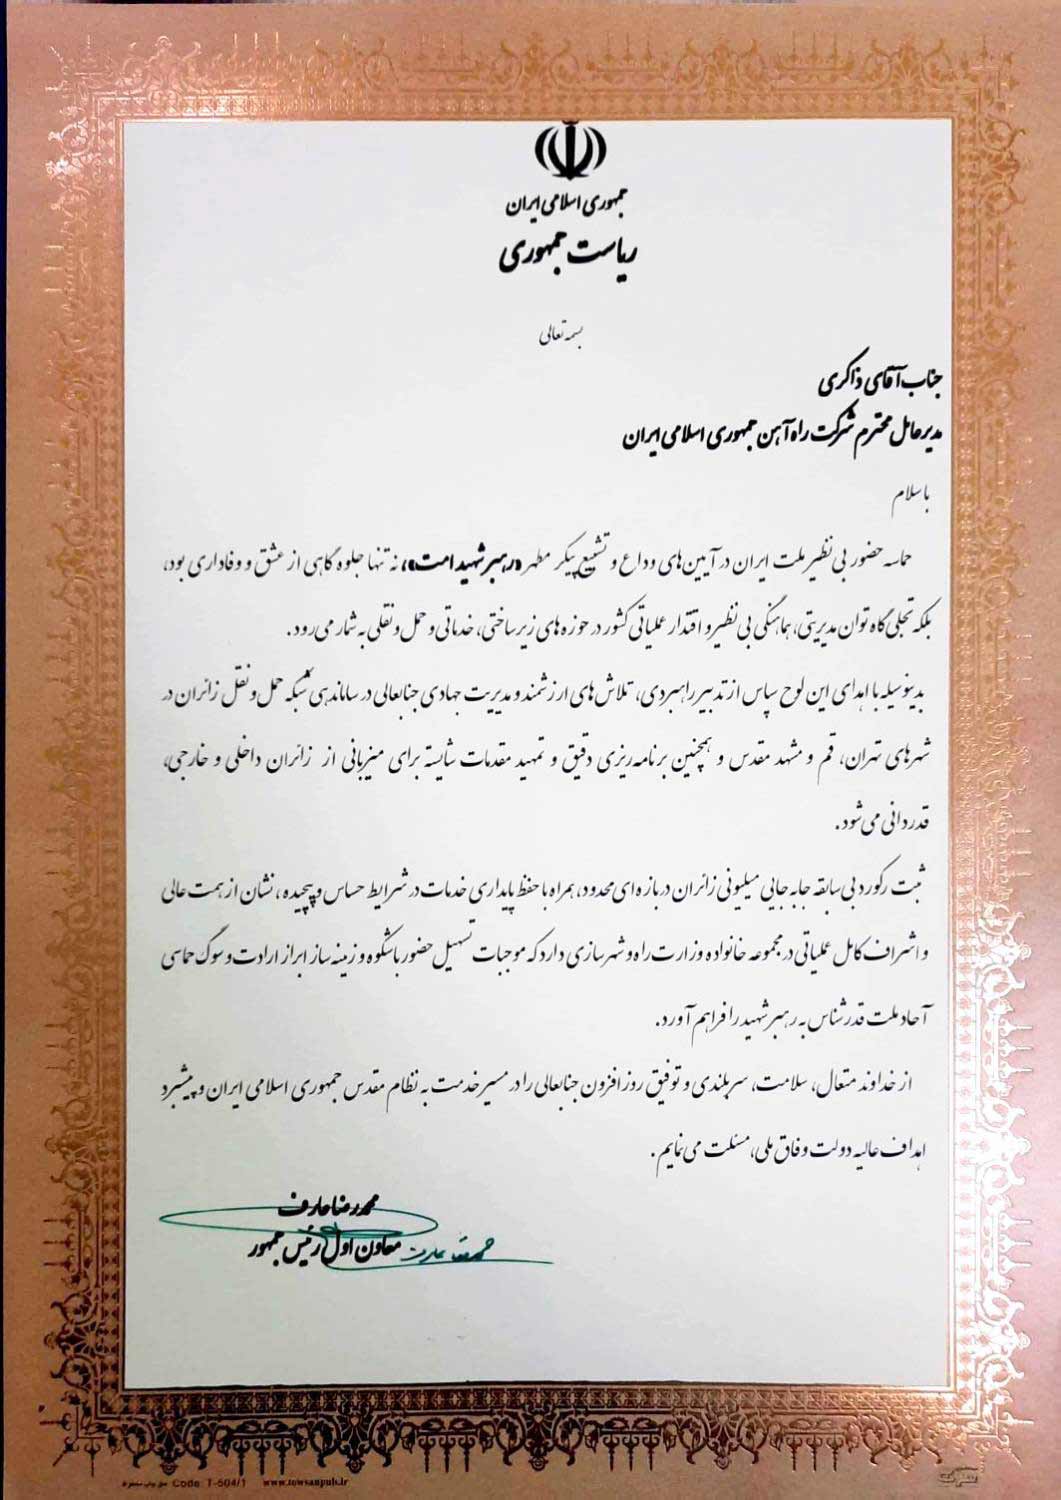 جمهوری اسلامی ایران
ریاست جمهوری
بسمه تعالی
جناب آقای ذاکری
مدیرعامل محترم شرکت راه آهن جمهوری اسلامی ایران
با سلام
حماسه حضور بی نظیر ملت ایران در آیین های وداع و تشییع پیکر مطهر «رهبر شهید امت»، نه تنها جلوه گاهی از عشق و وفاداری بود،
بلکه تجلی گاه توان مدیریتی، هماهنگی بی نظیر و اقتدار عملیاتی کشور در حوزه های زیرساختی، خدماتی و حمل و نقلی به شمار می رود.
بدینوسیله با اهدای این لوح سپاس از تدبیر راهبردی، تلاش های ارزشمند و مدیریت جهادی جنابعالی در ساماندهی شبکه حمل و نقل زائران در
شهرهای تهران، قم و مشهد مقدس و همچنین برنامه ریزی دقیق و تمهید مقدمات شایسته برای میزبانی از زائران داخلی و خارجی،
قدردانی می شود.
ثبت رکورد بی سابقه جابه جایی میلیونی زائران در بازه ای محدود، همراه با حفظ پایداری خدمات در شرایط حساس و پیچیده، نشان از همت عالی
و اشراف کامل عملیاتی در مجموعه خانواده وزارت راه و شهرسازی دارد که موجبات تسهیل حضور باشکوه و زمینه ساز ابراز ارادت و سوگ حماسی
آحاد ملت قدرشناس به رهبر شهید را فراهم آورد.
از خداوند متعال، سلامت، سربلندی و توفیق روز افزون جنابعالی را در مسیر خدمت به نظام مقدس جمهوری اسلامی ایران و پیشبرد
اهداف عالیه دولت وفاق ملی، مسئلت می نمایم.
محمدرضا عارف
معاون اول رئیس جمهور
Code T-504/1 www.towsanpub.ir